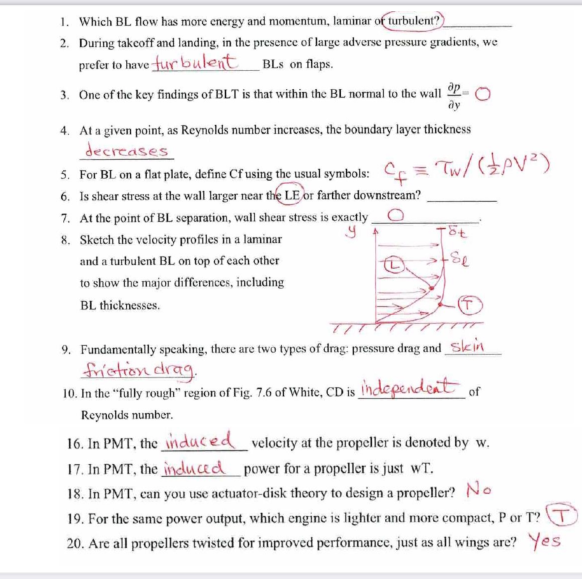 1. Which BL flow has more energy and momentum, laminar or turbulent?
2. During takeoff and landing, in the presence of large adverse pressure gradients, we
prefer to have turbulent BLs on flaps.
3. One of the key findings of BLT is that within the BL normal to the wall ∂p/∂y = 0
4. At a given point, as Reynolds number increases, the boundary layer thickness
decreases
5. For BL on a flat plate, define Cf using the usual symbols: Cf ≡ τw/(½ρV²)
6. Is shear stress at the wall larger near the LE or farther downstream?
7. At the point of BL separation, wall shear stress is exactly 0.
8. Sketch the velocity profiles in a laminar
and a turbulent BL on top of each other
to show the major differences, including
BL thicknesses.
y
δt
δl
L
T
9. Fundamentally speaking, there are two types of drag: pressure drag and skin
friction drag.
10. In the “fully rough” region of Fig. 7.6 of White, CD is independent of
Reynolds number.
16. In PMT, the induced velocity at the propeller is denoted by w.
17. In PMT, the induced power for a propeller is just wT.
18. In PMT, can you use actuator-disk theory to design a propeller? No
19. For the same power output, which engine is lighter and more compact, P or T? T
20. Are all propellers twisted for improved performance, just as all wings are? Yes